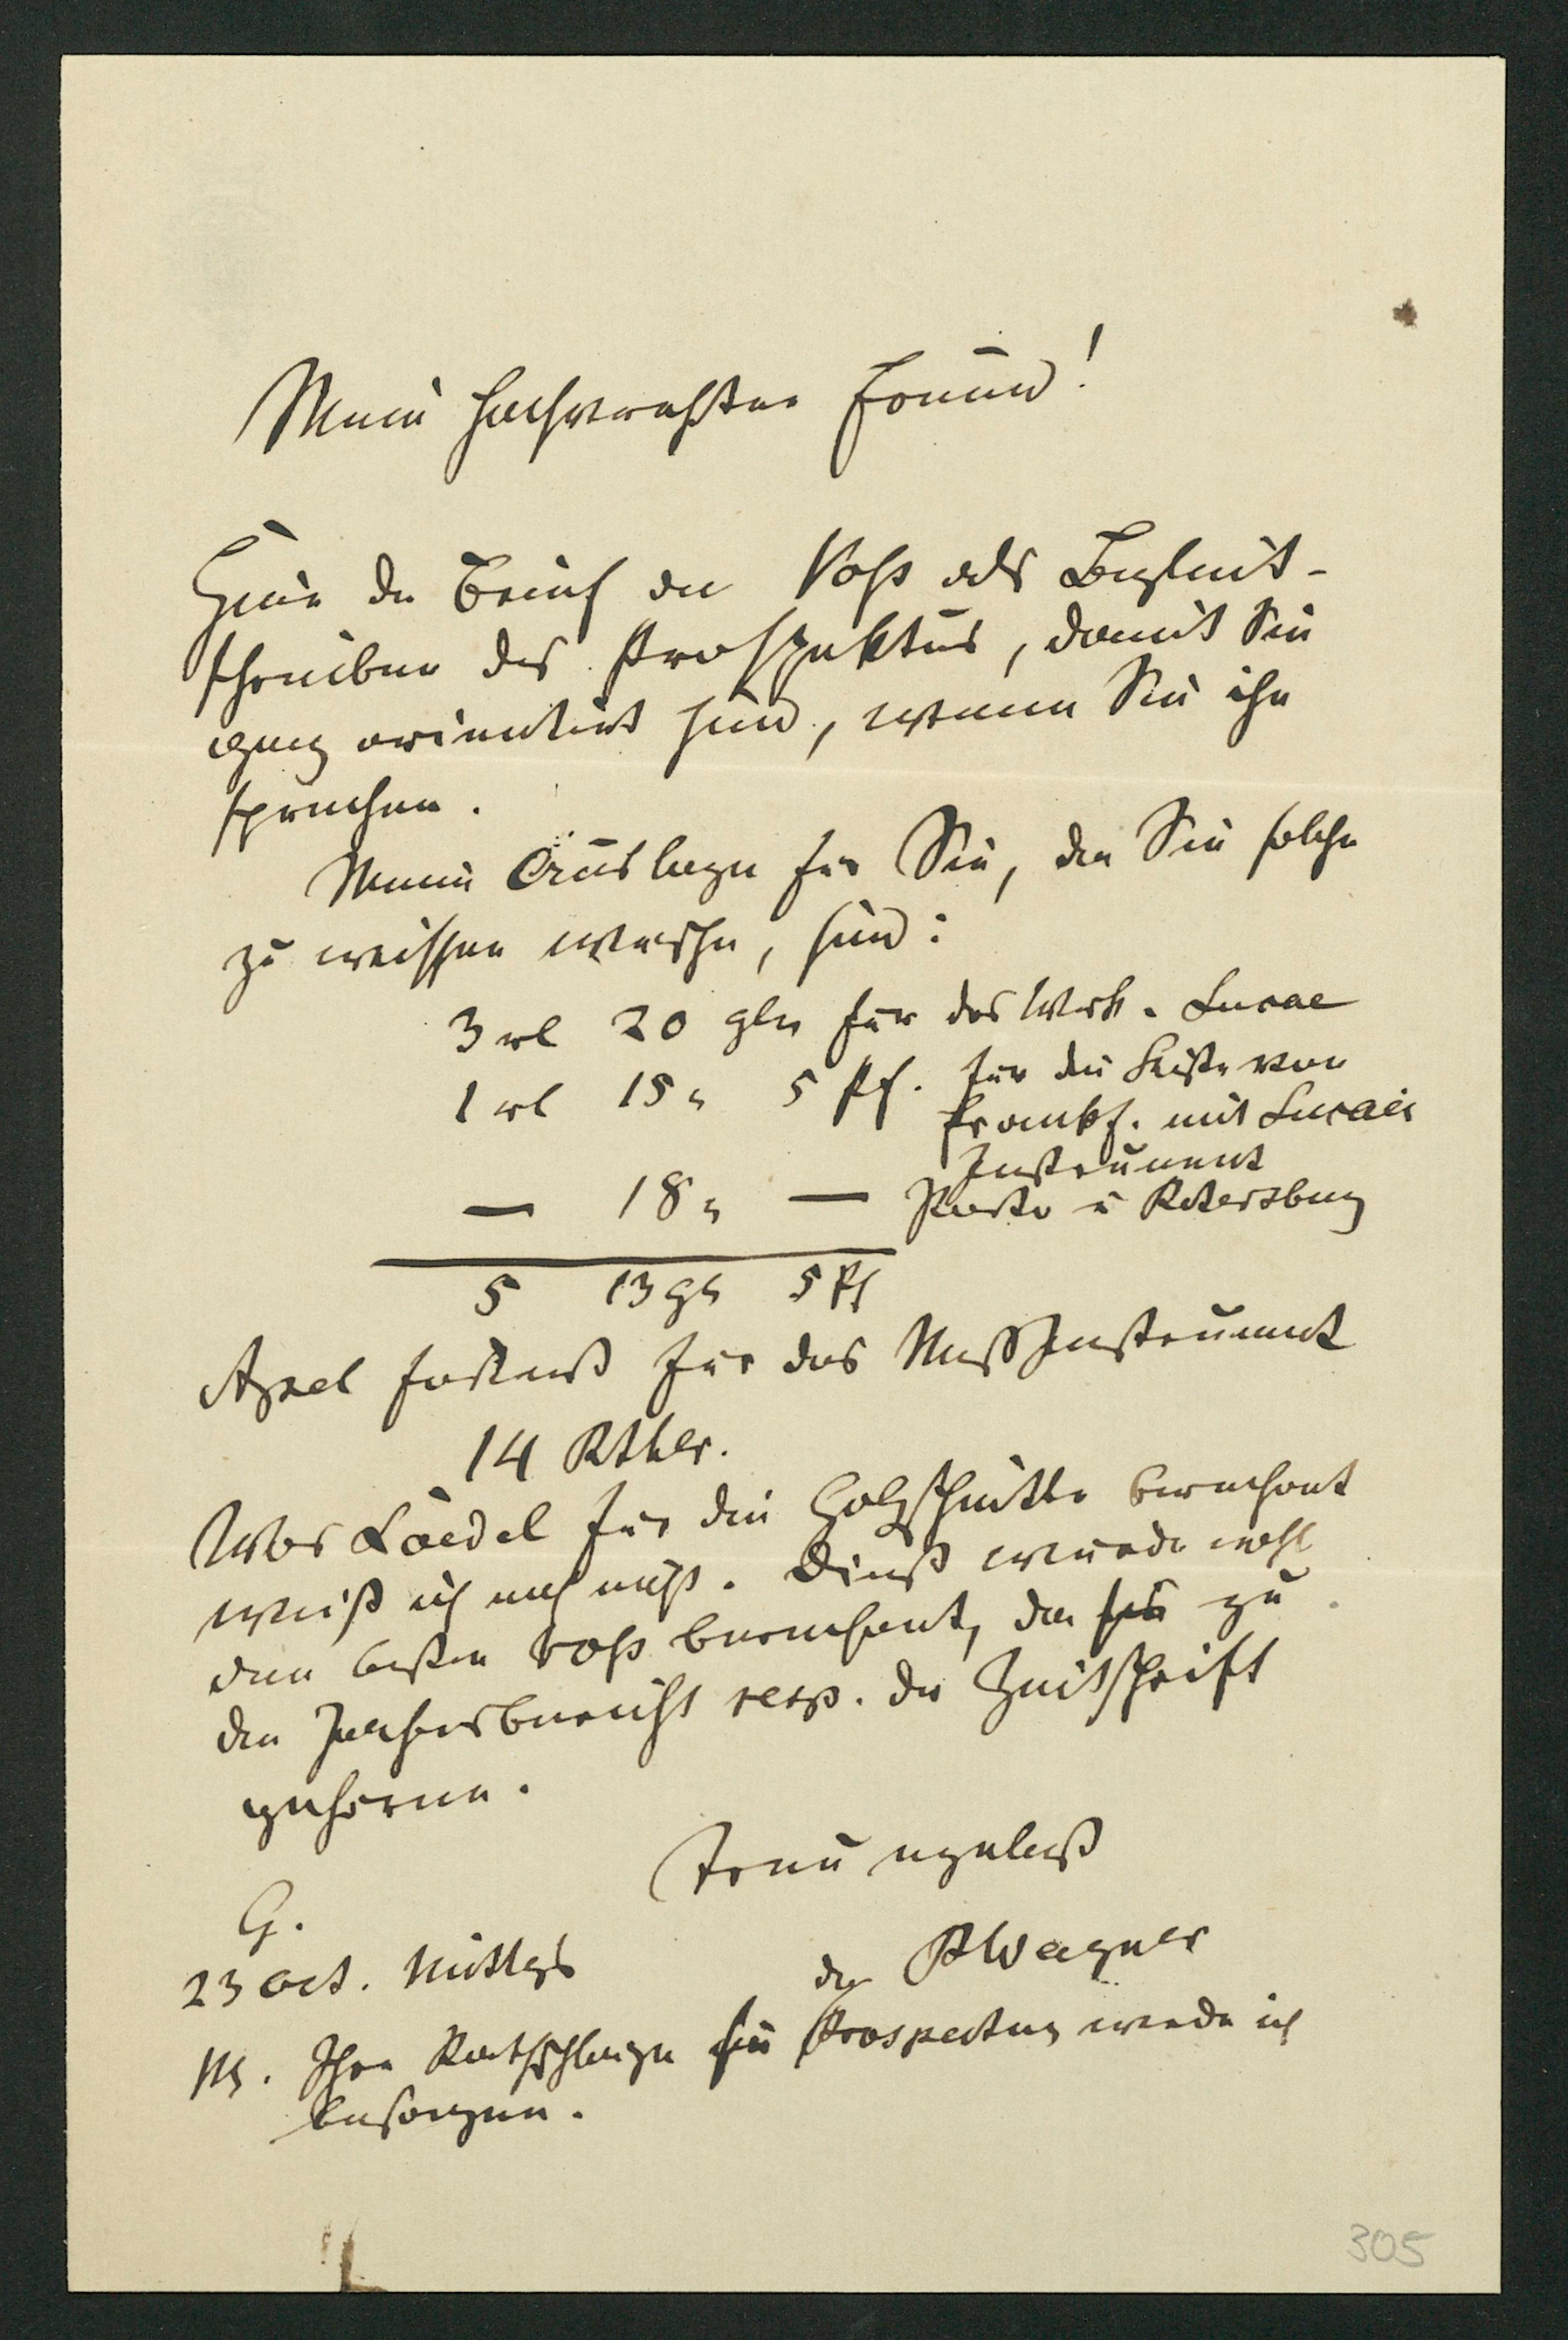 Mein hochverehrter Freund!
Hier der Brief an Voß als Begleit-
schreiben des Prospektus, damit Sie
ganz orientirt sind, wenn Sie ihn
sprechen.
Meine Auslagen für Sie, da Sie solche
zu wissen wünschen, sind:
3 rl 20 glr für das Werk v. Lucae
1 rl 15 " 5 Pf. für die Kiste von
Frankf. mit Lucaes
Instrument
— 18 " — Porto n Petersburg
5 13 gl 5 Pf
Apel fordert für das Meßinstrument
14 Rthlr.
Was Loedel für die Holzschnitte berechnet
weiß ich noch nicht. Dieß wurde wohl
am besten Voß berechnet, da sie zu
dem Jahresbericht resp. der Zeitschrift
gehören.
Treu ergebenst
G.
23 Oct. Mittags
der RWagner
NB. Ihre Rathschläge für Prospectus werde ich
besorgen.
305